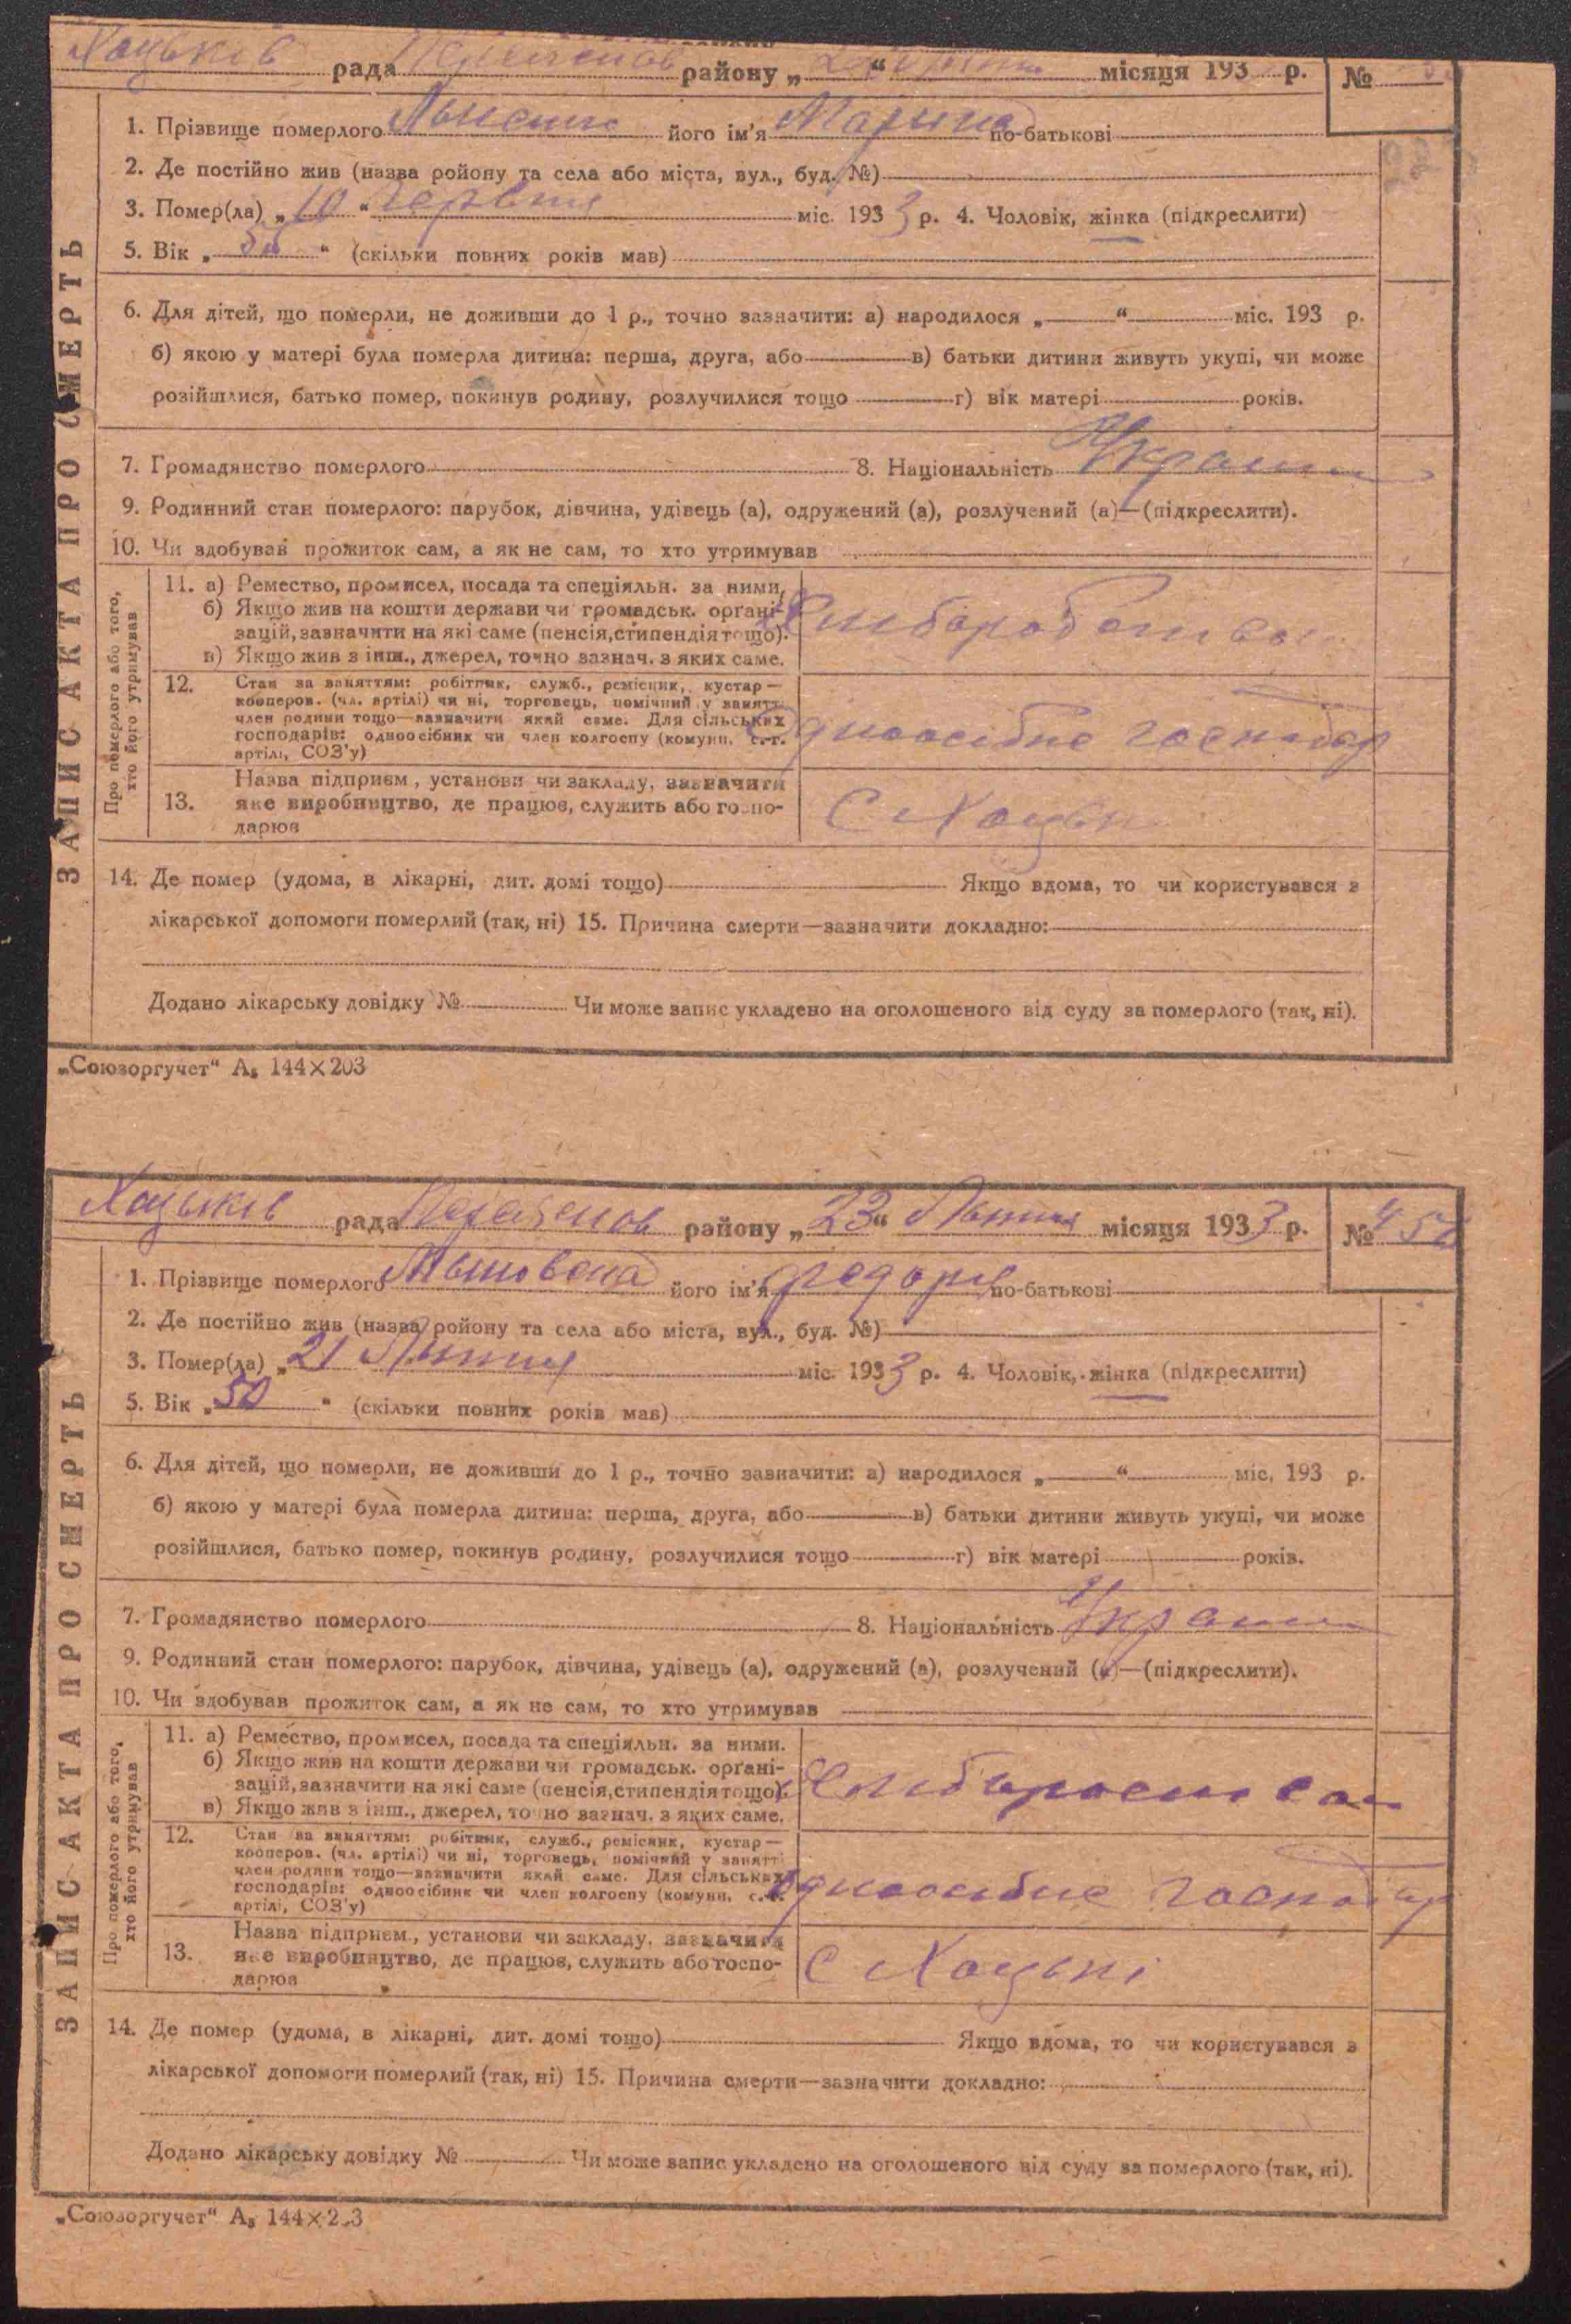 Хацьків рада району „ “ місяця 193 р. №
1. Прізвище померлого його ім'я Марина по-батькові
2. Де постійно жив (назва ройону та села або міста, вул., буд. №)
3. Помер(ла) „10“ Червня міс. 1933 р. 4. Чоловік, жінка (підкреслити)
5. Вік „ “ (скільки повних років мав)
6. Для дітей, що померли, не доживши до 1 р., точно зазначити: а) народилося „ “ міс. 193 р.
б) якою у матері була померла дитина: перша, друга, або в) батьки дитини живуть укупі, чи може
розійшлися, батько помер, покинув родину, розлучилися тощо г) вік матері років.
7. Громадянство померлого 8. Національність Украин
9. Родинний стан померлого: парубок, дівчина, удівець (а), одружений (а), розлучений (а)—(підкреслити).
10. Чи здобував прожиток сам, а як не сам, то хто утримував
ЗАПИС АКТА ПРО СМЕРТЬ
Про померлого або того, хто його утримував
11. а) Ремество, промисел, посада та спеціяльн. за ними,
б) Якщо жив на кошти держави чи громадськ. орґані-
зацій, зазначити на які саме (пенсія, стипендія тощо).
в) Якщо жив з інш., джерел, точно зазнач. з яких саме.
12. Стан за заняттям: робітник, служб., ремісник, кустар—
кооперов. (чл. артілі) чи ні, торговець, помічний у занятті
член родини тощо—зазначити який саме. Для сільських
господарів: одноосібник чи член колгоспу (комуни, с.-г.
артілі, СОЗ'у)
Одноосібне господар
13. Назва підприєм., установи чи закладу, зазначити
яке виробництво, де працює, служить або госпо-
дарює
С Хацьки
14. Де помер (удома, в лікарні, дит. домі тощо) Якщо вдома, то чи користувався з
лікарської допомоги померлий (так, ні) 15. Причина смерти—зазначити докладно:
Додано лікарську довідку № Чи може запис укладено на оголошеного від суду за померлого (так, ні).
„Союзоргучет“ А₅ 144×203
Хацьків рада району „23“ Липня місяця 1933 р. № 456
1. Прізвище померлого його ім'я по-батькові
2. Де постійно жив (назва ройону та села або міста, вул., буд. №)
3. Помер(ла) „21 Липня міс. 1933 р. 4. Чоловік, жінка (підкреслити)
5. Вік „50“ (скільки повних років мав)
6. Для дітей, що померли, не доживши до 1 р., точно зазначити: а) народилося „ “ міс. 193 р.
б) якою у матері була померла дитина: перша, друга, або в) батьки дитини живуть укупі, чи може
розійшлися, батько помер, покинув родину, розлучилися тощо г) вік матері років.
7. Громадянство померлого 8. Національність Украин
9. Родинний стан померлого: парубок, дівчина, удівець (а), одружений (а), розлучений (а)—(підкреслити).
10. Чи здобував прожиток сам, а як не сам, то хто утримував
ЗАПИС АКТА ПРО СМЕРТЬ
Про померлого або того, хто його утримував
11. а) Ремество, промисел, посада та спеціяльн. за ними.
б) Якщо жив на кошти держави чи громадськ. орґані-
зацій, зазначити на які саме (пенсія, стипендія тощо).
в) Якщо жив з інш., джерел, точно зазнач. з яких саме.
12. Стан за заняттям: робітник, служб., ремісник, кустар—
кооперов. (чл. артілі) чи ні, торговець, помічний у занятті
член родини тощо—зазначити який саме. Для сільських
господарів: одноосібник чи член колгоспу (комуни, с.-г.
артілі, СОЗ'у)
Одноосібне господар
13. Назва підприєм., установи чи закладу, зазначити
яке виробництво, де працює, служить або госпо-
дарює
С Хацькі
14. Де помер (удома, в лікарні, дит. домі тощо) Якщо вдома, то чи користувався з
лікарської допомоги померлий (так, ні) 15. Причина смерти—зазначити докладно:
Додано лікарську довідку № Чи може запис укладено на оголошеного від суду за померлого (так, ні).
„Союзоргучет“ А₅ 144×203